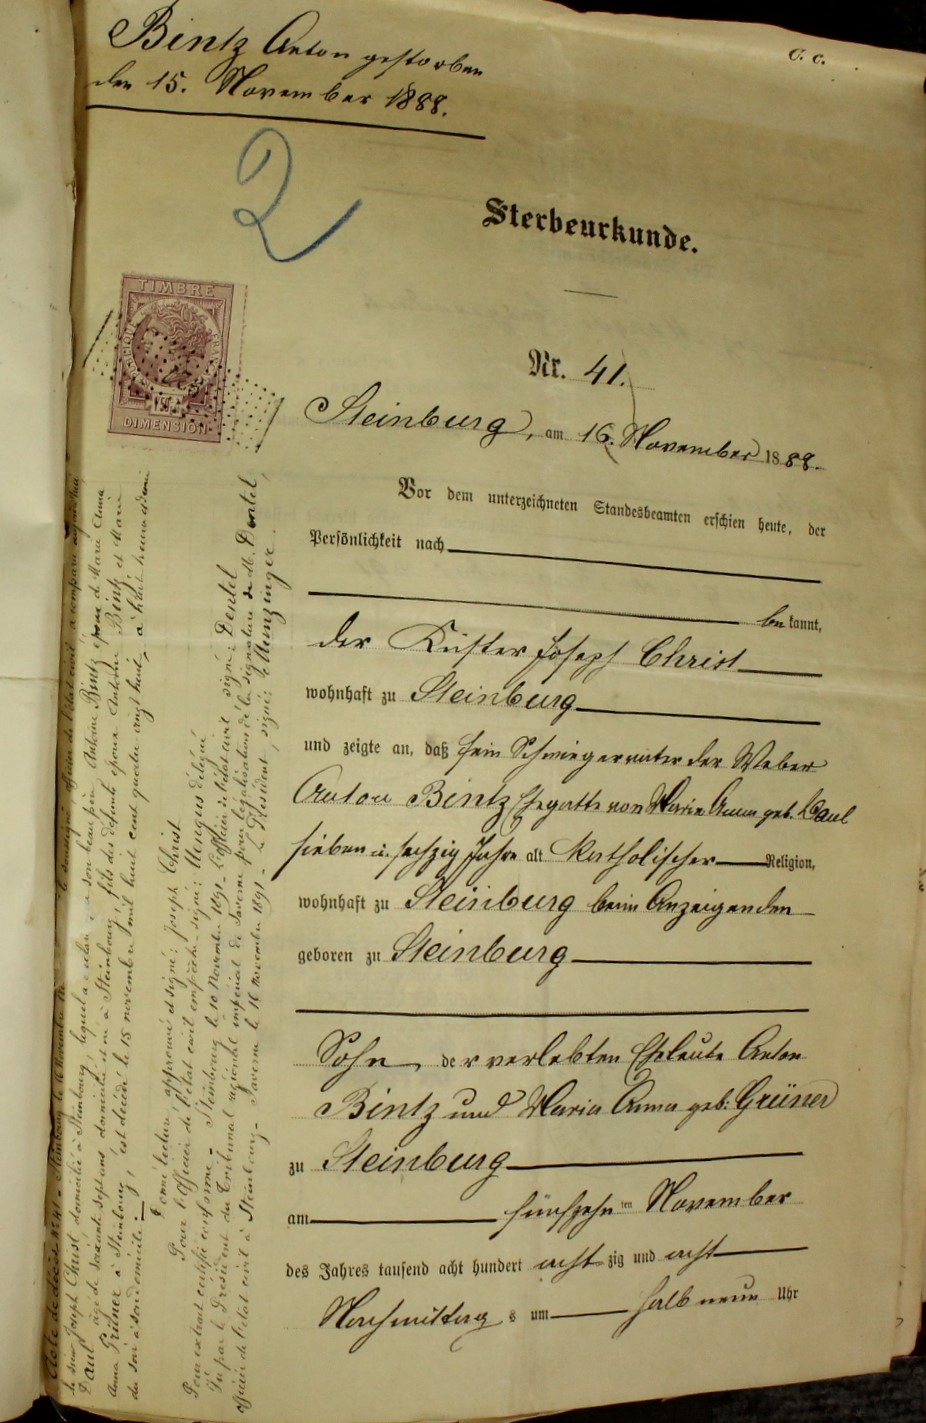 Bintz Anton gestorben
den 15. November 1888.
c. c.
2
Sterbeurkunde.
TIMBRE
DIMENSION
Nr. 41.
Steinburg, am 16. November 1888.
Vor dem unterzeichneten Standesbeamten erschien heute, der
Persönlichkeit nach
bekannt,
der Küster Joseph Christ
wohnhaft zu Steinburg
und zeigte an, daß sein Schwiegervater der Weber
Anton Bintz Ehegatte von Maria Anna geb. Paul
sieben u. sechzig Jahre alt katholischer Religion,
wohnhaft zu Steinburg beim Anzeigenden
geboren zu Steinburg
Sohn der verlebten Eheleute Anton
Bintz und Maria Anna geb. Grüner
zu Steinburg
am fünfzehnten November
des Jahres tausend acht hundert achtzig und acht
Nachmittags um halb neun Uhr
Acte de décès No 41 - Steinbourg le 16 Novembre le soussigné officier de l'état civil a comparu aujourd'hui
le sieur Joseph Christ domicilié à Steinbourg, lequel a déclaré que son beau père Antoine Bintz époux de Maria Anna
Paul âgé de soixante sept ans domicilié et né à Steinbourg, fils des défunts époux Antoine Bintz et Marie
Anna Grüner à Steinbourg, est décédé le 15 novembre mil huit cent quatre vingt huit, à huit heures et demi
du soir à son domicile.
Donné lecture approuvé et signé: Joseph Christ
Pour l'officier de l'état civil empêché signé: Mengus délégué
Pour extrait certifié conforme - Steinbourg le 10 Novembre 1891 - L'officier de l'état civil signé: Dentel
Vu par le Président du Tribunal régional impérial de Saverne pour légalisation de la signature de M. Dentel,
officier de l'état civil à Steinbourg - Saverne le 16 novembre 1891 - Le Président, signé: Munzinger.